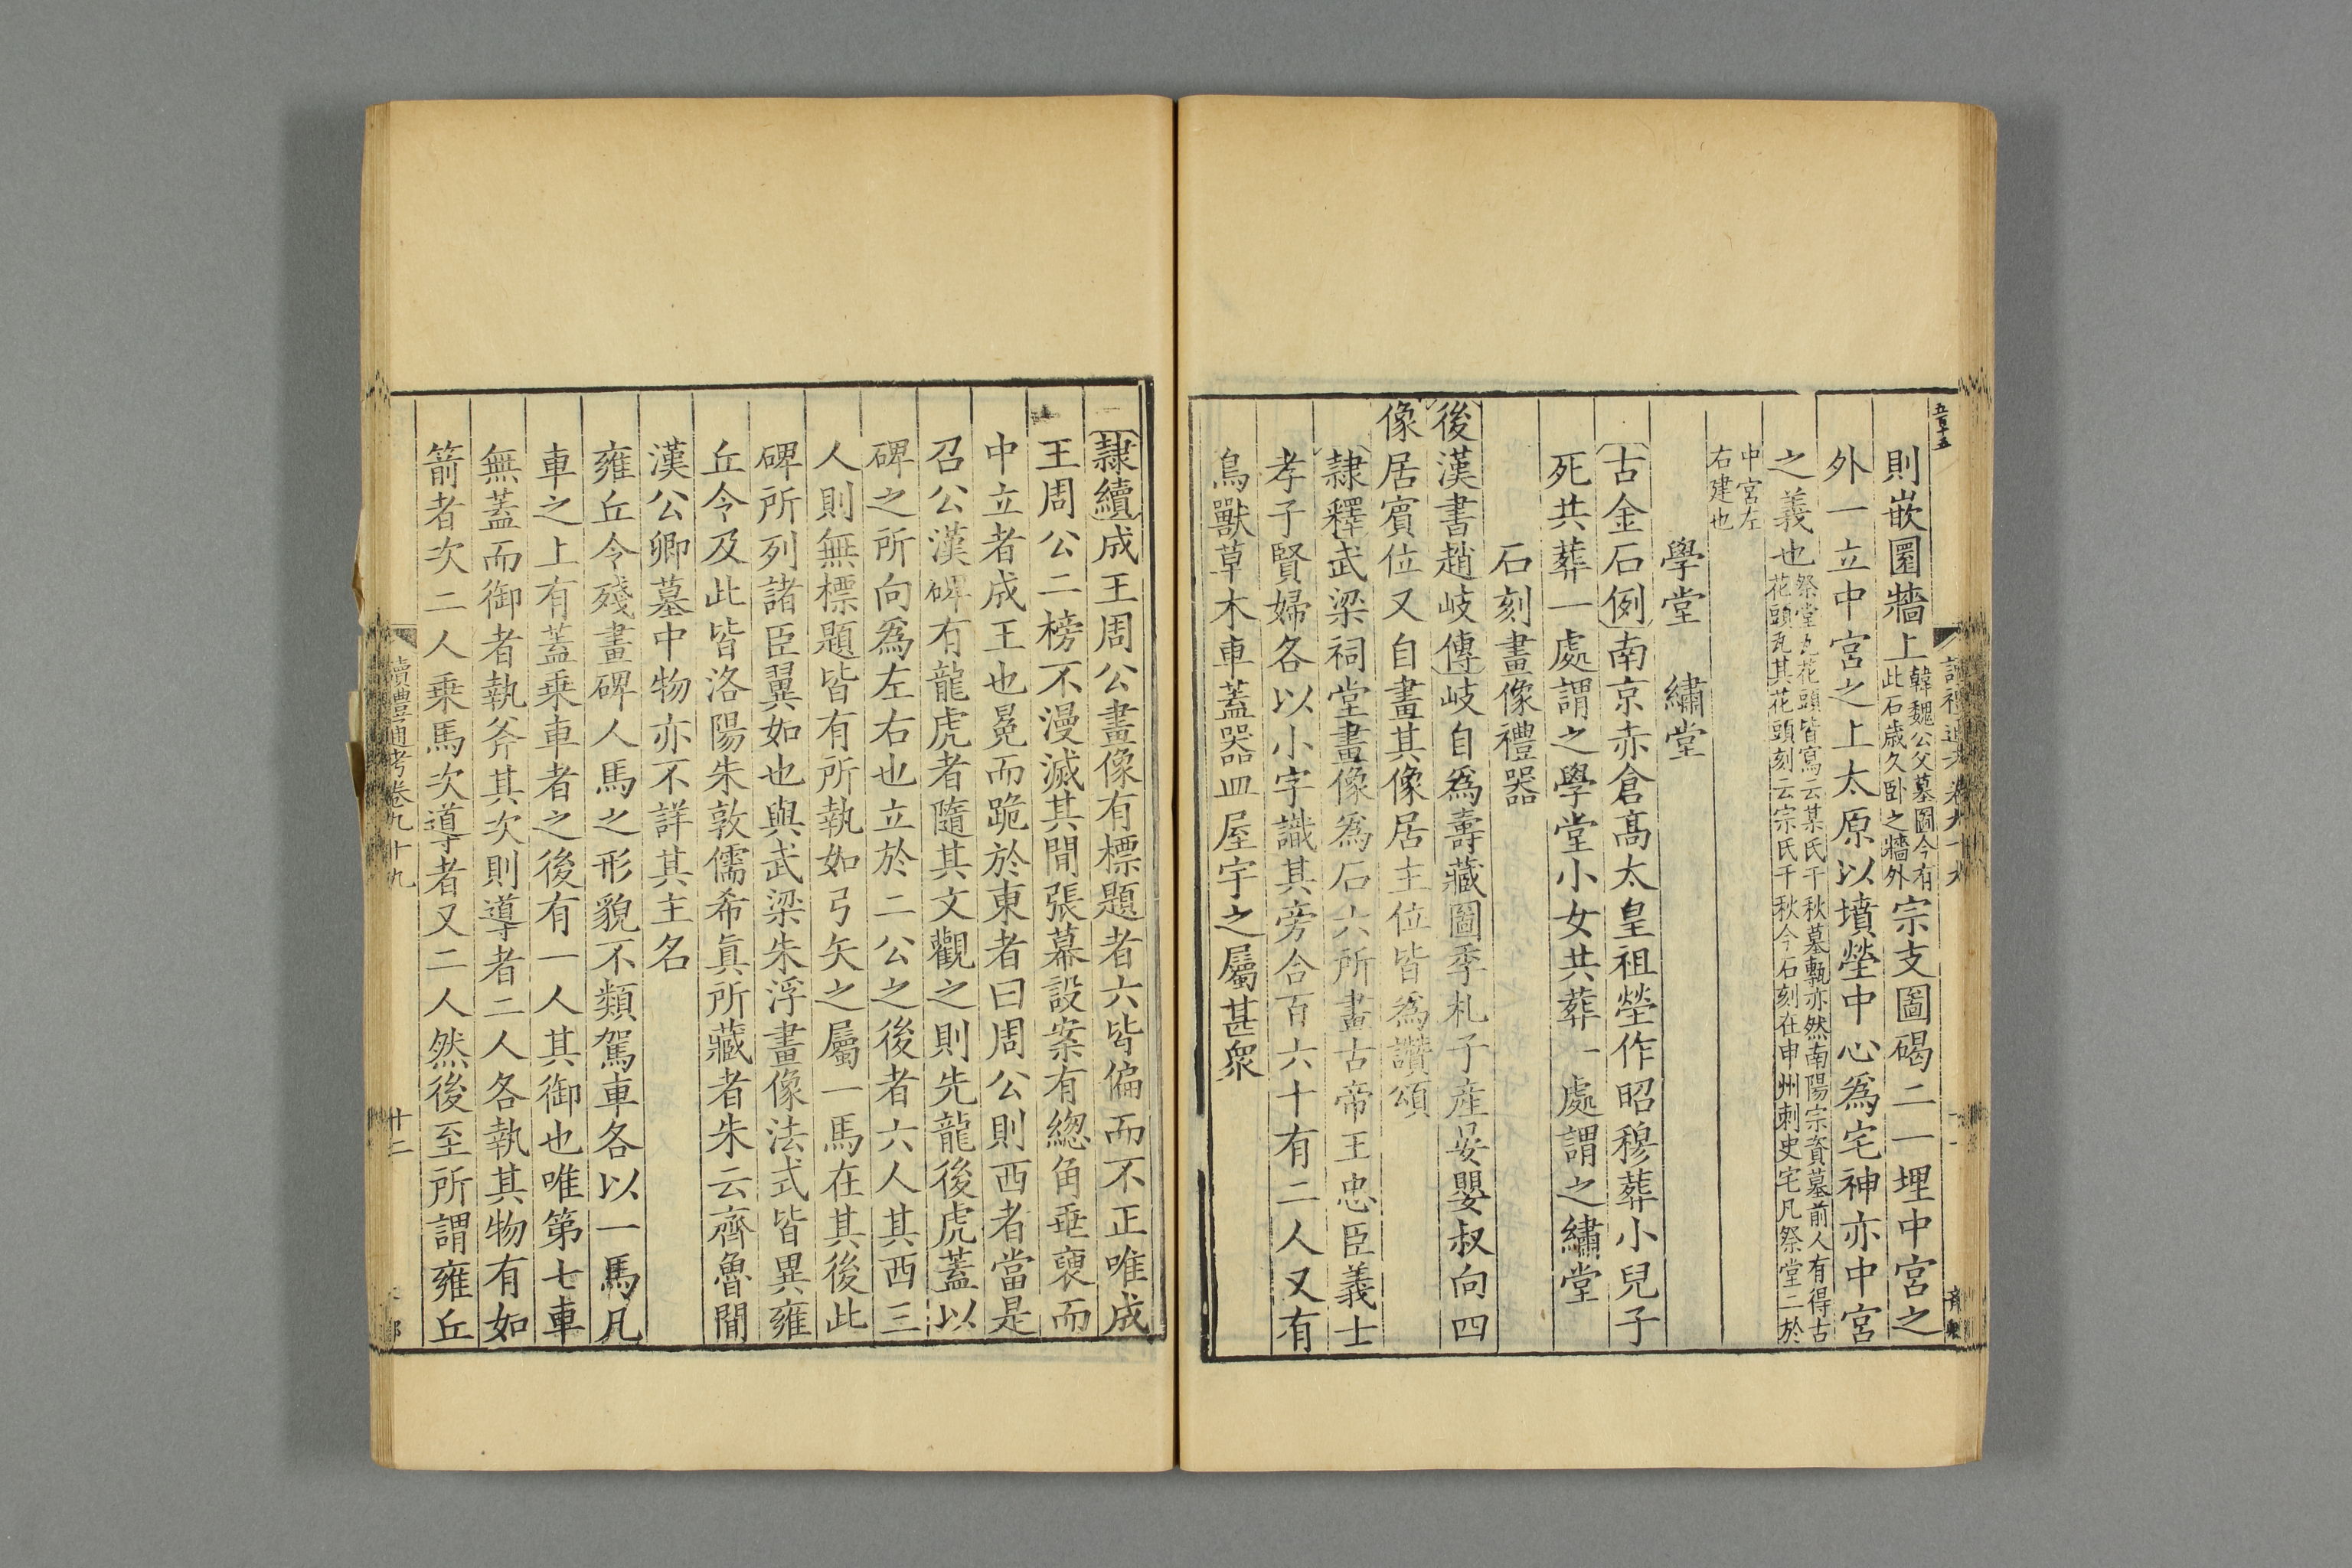 五百十五
則嵌圍牆上韓魏公父墓圖今有此石歲久卧之牆外宗支圖碣二一埋中宮之
外一立中宮之上太原以墳塋中心爲宅神亦中宮
之義也祭堂瓦花頭皆寫云某氏千秋墓甎亦然南陽宗資墓前人有得古花頭瓦其花頭刻云宗氏千秋今石刻在申州刺史宅凡祭堂二於
中宮左右建也
學堂　繡堂
古金石例南京赤倉高太皇祖塋作昭穆葬小兒子
死共葬一處謂之學堂小女共葬一處謂之繡堂
石刻畫像禮器
後漢書趙岐傳岐自爲壽藏圖季札子產晏嬰叔向四
像居賓位又自畫其像居主位皆爲讚頌
隸釋武梁祠堂畫像爲石六所畫古帝王忠臣義士
孝子賢婦各以小字識其旁合百六十有二人又有
鳥獸草木車蓋器皿屋宇之屬甚衆
隸續成王周公畫像有標題者六皆偏而不正唯成
王周公二榜不漫滅其閒張幕設案有緫角垂褏而
中立者成王也冕而跪於東者曰周公則西者當是
召公漢碑有龍虎者隨其文觀之則先龍後虎蓋以
碑之所向爲左右也立於二公之後者六人其西三
人則無標題皆有所執如弓矢之屬一馬在其後此
碑所列諸臣翼如也與武梁朱浮畫像法式皆異雍
丘令及此皆洛陽朱敦儒希眞所藏者朱云齊魯閒
漢公卿墓中物亦不詳其主名
雍丘令殘畫碑人馬之形貌不類駕車各以一馬凡
車之上有蓋乘車者之後有一人其御也唯第七車
無蓋而御者執斧其次則導者二人各執其物有如
箭者次二人乘馬次導者又二人然後至所謂雍丘
讀禮通考卷九十九
廿二